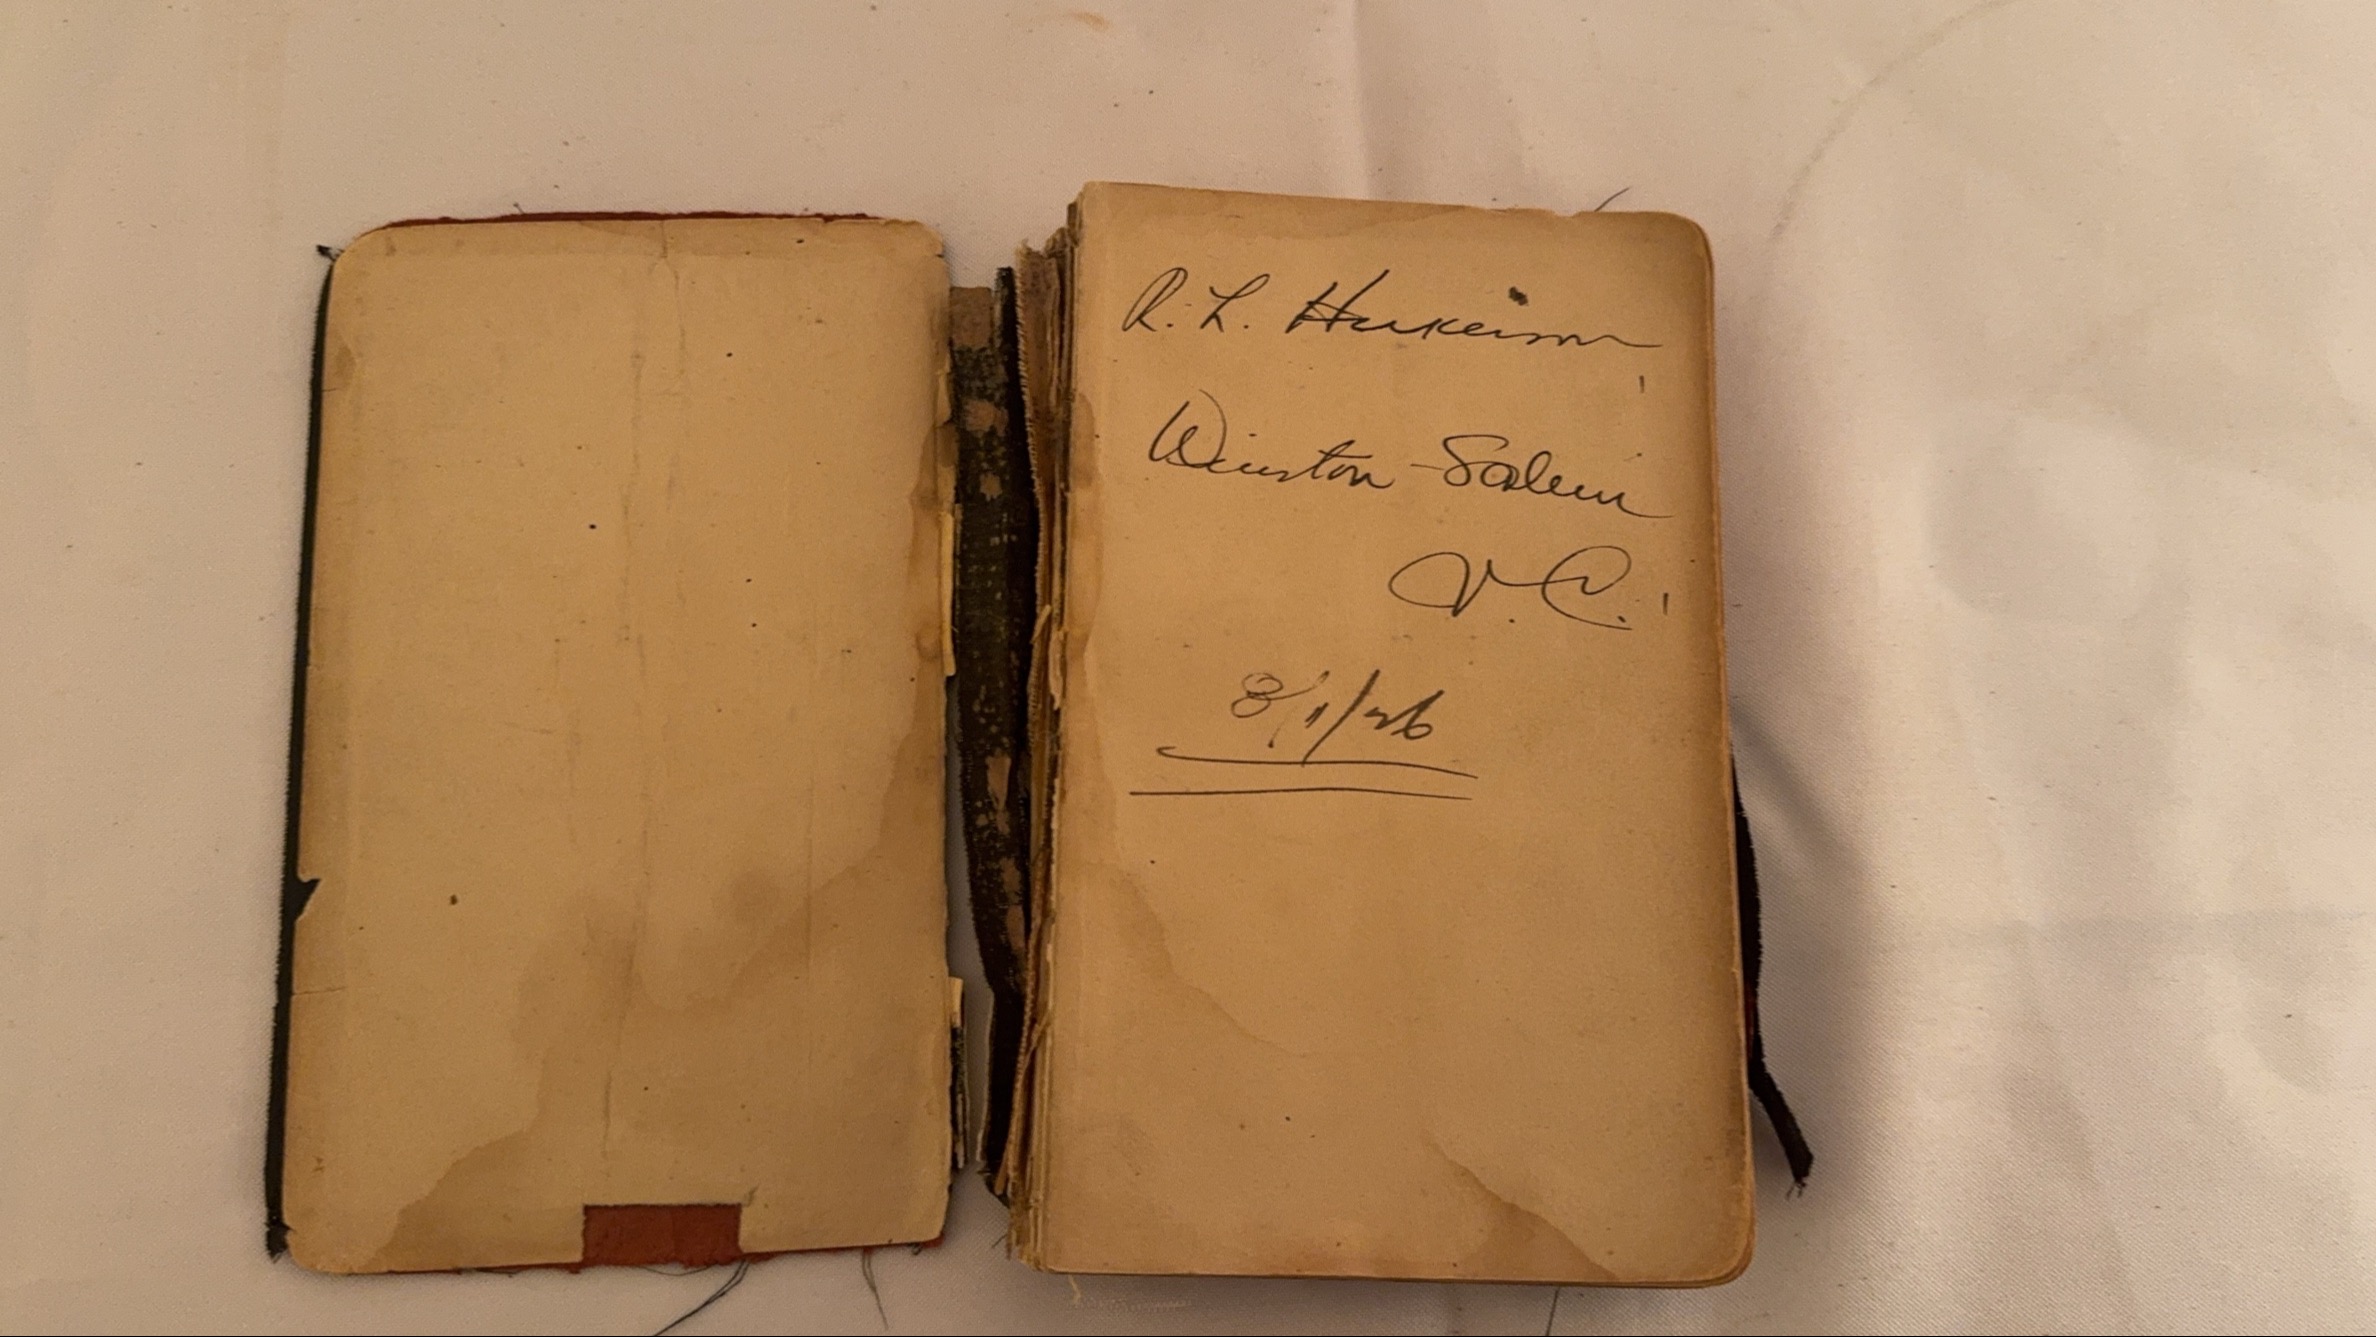 R. L.
Winston-Salem
N. C.
8/1/26